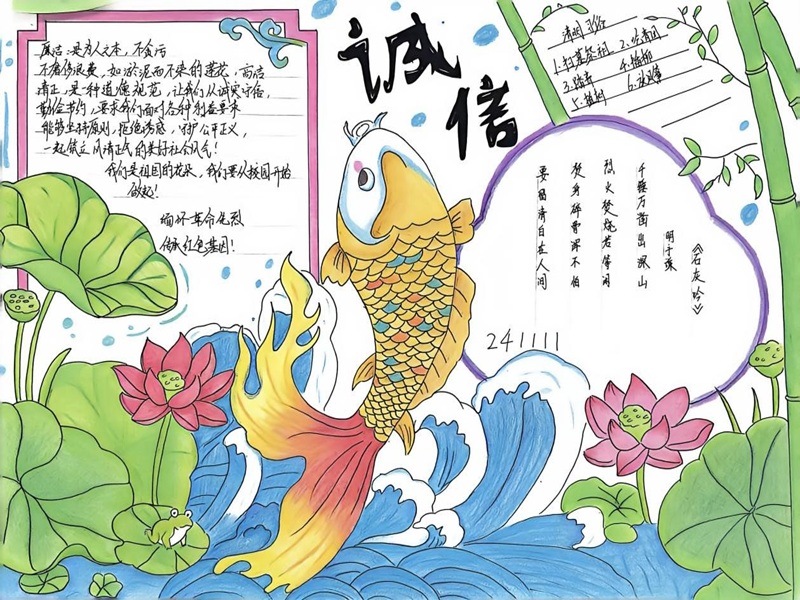 诚信
廉洁:是为人之本,不贪污
不腐伤浪费,如淤泥而不染的莲花,高洁
清正,是一种道德规范,让我们从诚实守信,
勤俭节约,要求我们面对各种利益要求
能够坚持原则,拒绝诱惑,守护公平正义,
一起树立风清正气的美好社会风气!
我们是祖国的花朵,我们要从校园开始
做起!
缅怀革命先烈
传承红色基因!
清明习俗
1.扫墓祭祖 2.吃清团
3.踏青 4.插柳
5.植树 6.放风筝
《石灰吟》
明于谦
千锤万凿出深山
烈火焚烧若等闲
焚身碎骨浑不怕
要留清白在人间
241111